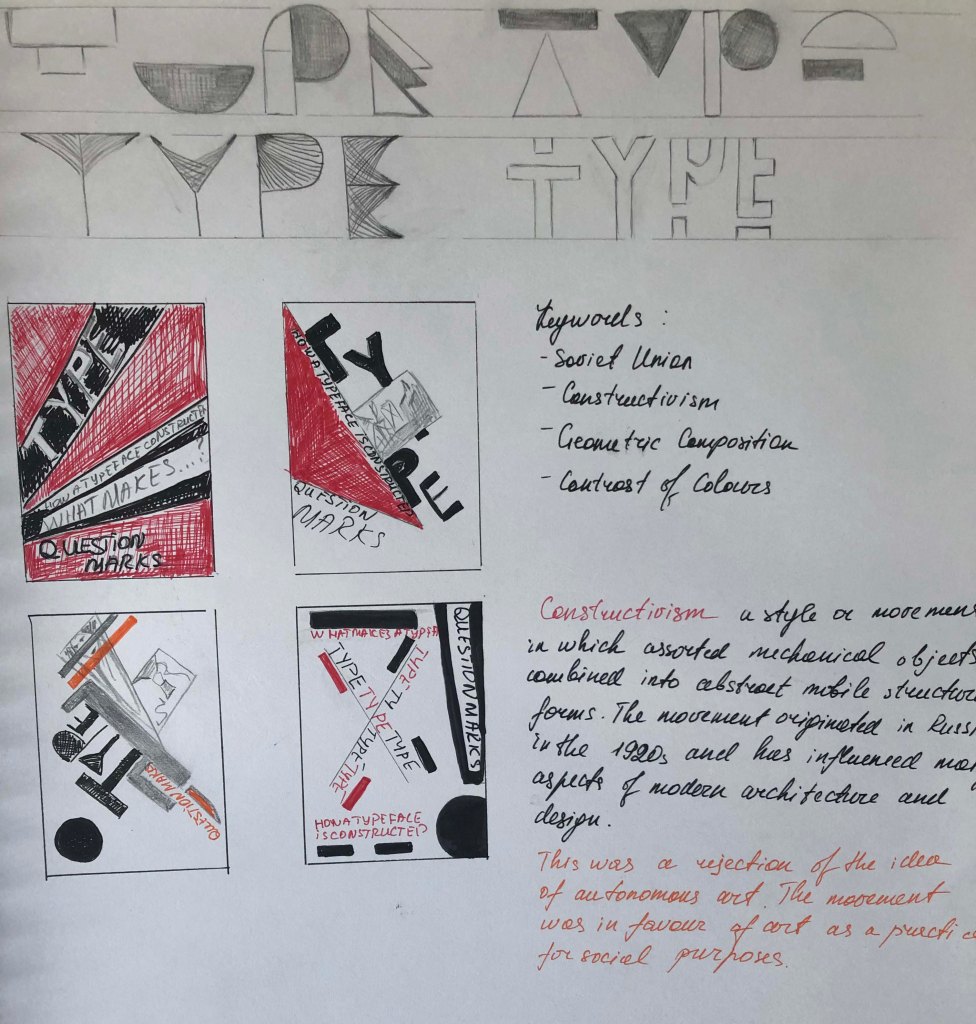 TYPE TYPE
TYPE TYPE
TYPE
HOW A TYPEFACE CONSTRUCTE
WHAT MAKES...?
QUESTION
MARKS
TYPE
HOW A TYPEFACE IS CONSTRUCTED
QUESTION
MARKS
Keywords :
- Soviet Union
- Constructivism
- Geometric Composition
- Contrast of Colours
TYPE
QUESTION MARKS
WHAT MAKES A TYPEFA
TYPE TYPE TYPE
TYPE TY
TYPE
TYPE TYPE
QUESTION MARKS
HOW A TYPEFACE
IS CONSTRUCTED
Constructivism a style or movemen
in which assorted mechanical objects
combined into abstract mobile structura
forms. The movement originated in Russi
in the 1920s and has influenced ma
aspects of modern architecture and
design.
This was a rejection of the idea
of autonomous art. The movement
was in favour of art as a practic
for social purposes.